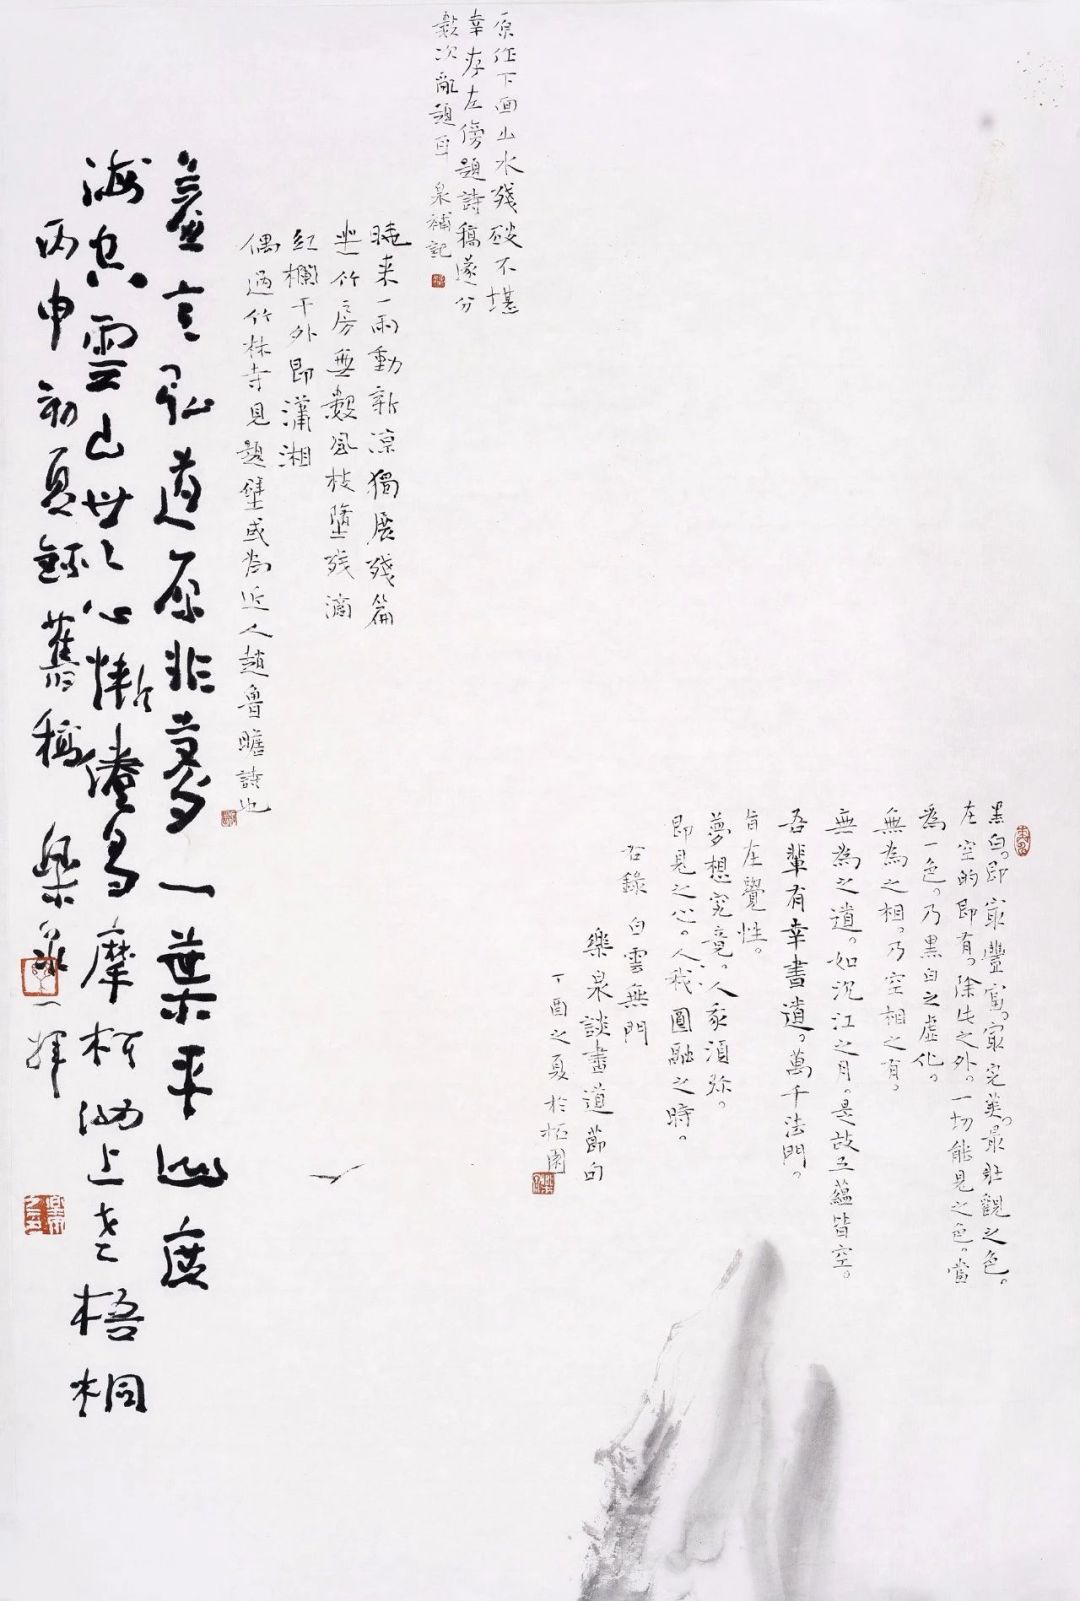 原作下面山水殘破不堪
幸存左傍題詩稿遂分
數次亂題耳 泉補記
曉来一雨動新涼獨展殘篇
坐竹房無數風枝墮残滴
紅欄干外即瀟湘
偶過竹林寺見題壁或為近人趙魯瞻詩也
言弘道原非夢一葉平山度
海空雲山世心慚倦鳥摩柯泐上老梧桐
丙申初夏録舊稿 樂泉一揮
黑白。即最豐富。最完美。最壯觀之色。
在空的即有。除此之外。一切能見之色。當
為一色。乃黑白之虛化。
無為之相。乃空相之有。
無為之道。如沉江之月。是故五蘊皆空。
吾輩有幸書道。萬千法門。
旨在覺性。
夢想究竟。人我須弥。
即見之心。人我圓融之時。
右錄 白雲無門
樂泉談畫道節句
丁酉之夏於柘園